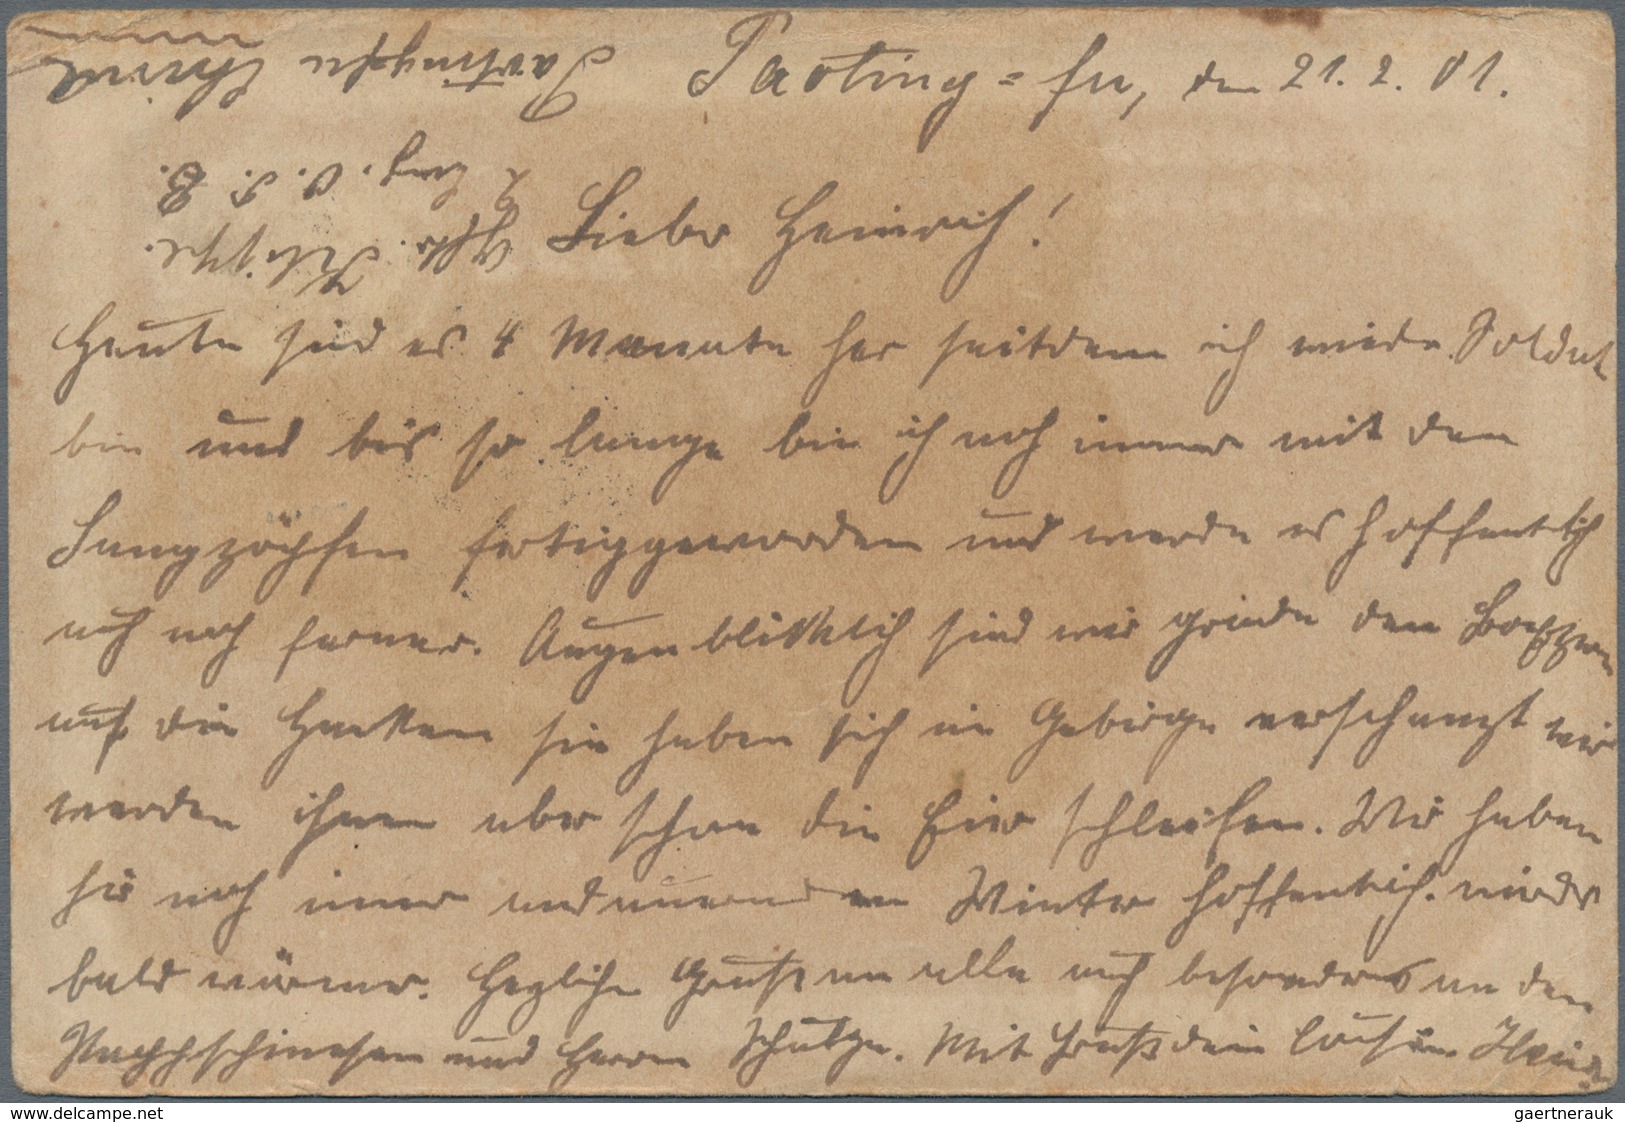 Paoting=fu, den 21.2.01.
Paotingfu China
Lieber Heinrich!
Heute sind es 4 Monate her seitdem ich wieder Soldat
bin und bis so lange bin ich noch immer mit den
Langzöpfen fertiggeworden und werde es hoffentlich
auch noch ferner. Augenblicklich sind wir grade den Boxern
auf die Hacken sie haben sich im Gebirge verschanzt wir
werden ihnen aber schon die Eier schleifen. Wir haben
hir noch immer Winter hoffentlich wirds
bald wärmer. Herzliche Grüße an alle auch besonders an den
und Herrn Schulze. Mit Gruß dein
www.delcampe.net
gaertnerauk